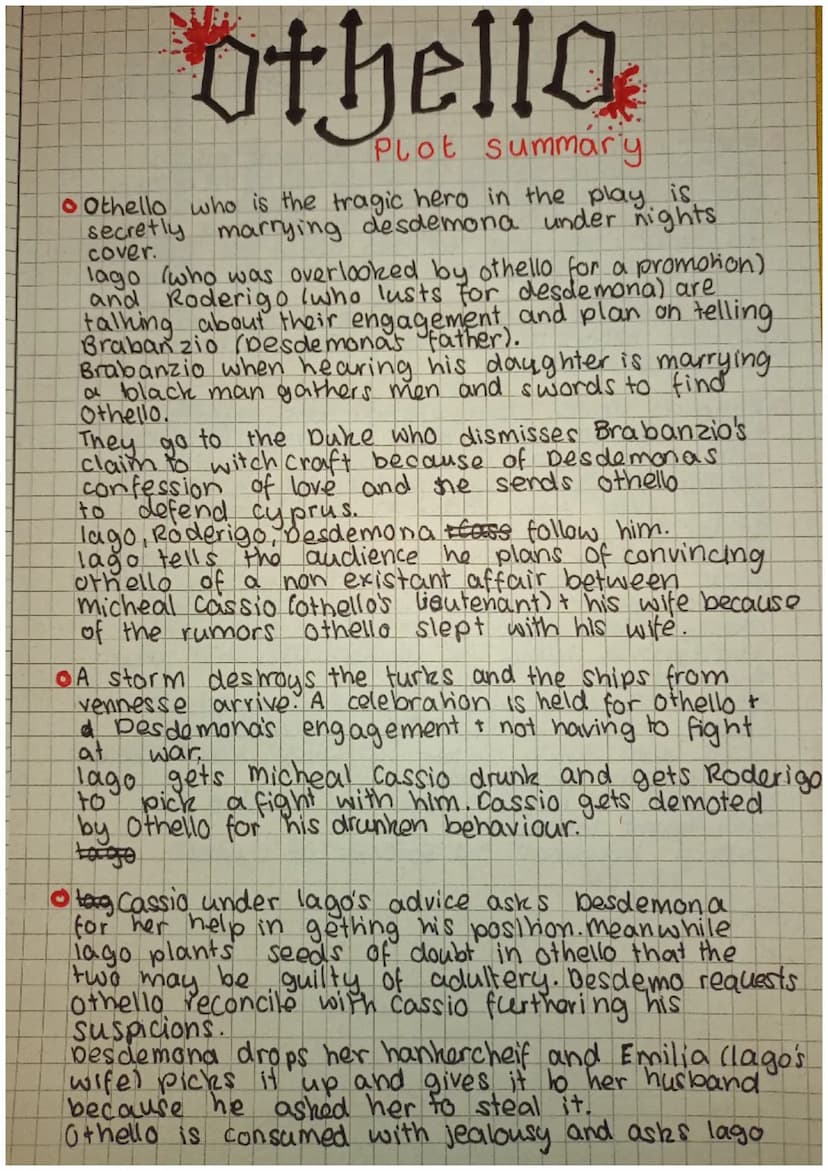 othello
Plot summary
Othello who is the tragic hero in the play is
secretly marrying desdemona under nights
cover.
Iago (who was overlooked by othello for a promotion)
and Roderigo (who lusts for desdemona) are
talking about their engagement and plan on telling
Brabanzio (Desdemona's father).
Brabanzio when hearing his daughter is marrying
a black man gathers men and swords to find
Othello.
They go to the Duke who dismisses Brabanzio's
claim to witchcraft because of Desdemonas
confession of love and he sends othello
to defend cyprus.
Iago, Roderigo, Desdemona follow him.
Iago tells the audience he plans of convincing
othello of a non existant affair between
micheal Cassio (othello's lieutenant) + his wife because
of the rumors othello slept with his wife.
A storm destroys the turks and the ships from
vennesse arrive. A celebration is held for othello +
Desdemona's engagement + not having to fight
at war.
Iago gets micheal Cassio drunk and gets Roderigo
to pick a fight with him. Cassio gets demoted
by Othello for his drunken behaviour.
Iago
Iag Cassio under Iago's advice asks Desdemona
for her help in getting his position. Meanwhile
Iago plants seeds of doubt in othello that the
two may be guilty of adultery. Desdemo requests
Othello reconcile with Cassio furthering his
suspicions.
Desdemona drops her hankercheif and Emilia (Iago's
wife) picks it up and gives it to her husband
because he asked her to steal it.
Othello is consumed with jealousy and asks Iago